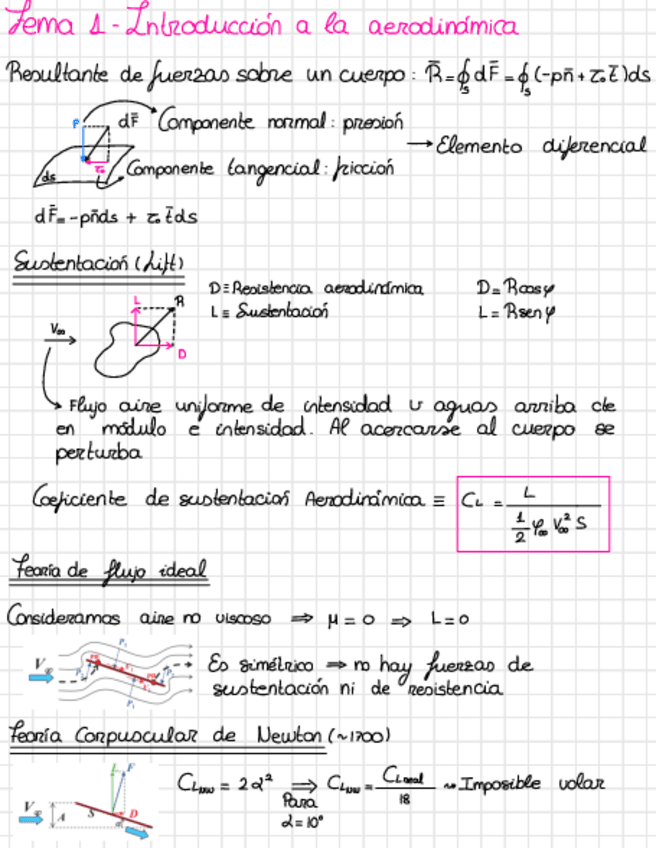 Tema 1 - Introducción a la aerodinámica
Resultante de fuerzas sobre un cuerpo : R̄ = ∮s dF̄ = ∮s (-pn̄ + τ₀ t̄) ds
P dF̄ Componente normal : presión
→ Elemento diferencial
τ₀ Componente tangencial : fricción
ds
dF̄ = -pn̄ds + τ₀ t̄ds
Sustentación (Lift)
D ≡ Resistencia aerodinámica D = Rcosφ
L ≡ Sustentación L = Rsenφ
L R
V∞
D
Flujo aire uniforme de intensidad v aguas arriba cte
en módulo e intensidad. Al acercarse al cuerpo se
perturba
Coeficiente de sustentación Aerodinámica ≡ CL = L / (1/2 ρ∞ V∞² S)
Teoría de flujo ideal
Consideramos aire no viscoso ⇒ μ = 0 ⇒ L = 0
V∞
Es simétrico ⇒ no hay fuerzas de
sustentación ni de resistencia
Teoría Corpuscular de Newton (~1700)
CLNW = 2α² ⇒ CLNW = CLreal / 18 ~ Imposible volar
Para
α = 10°
L F
V∞ A S D